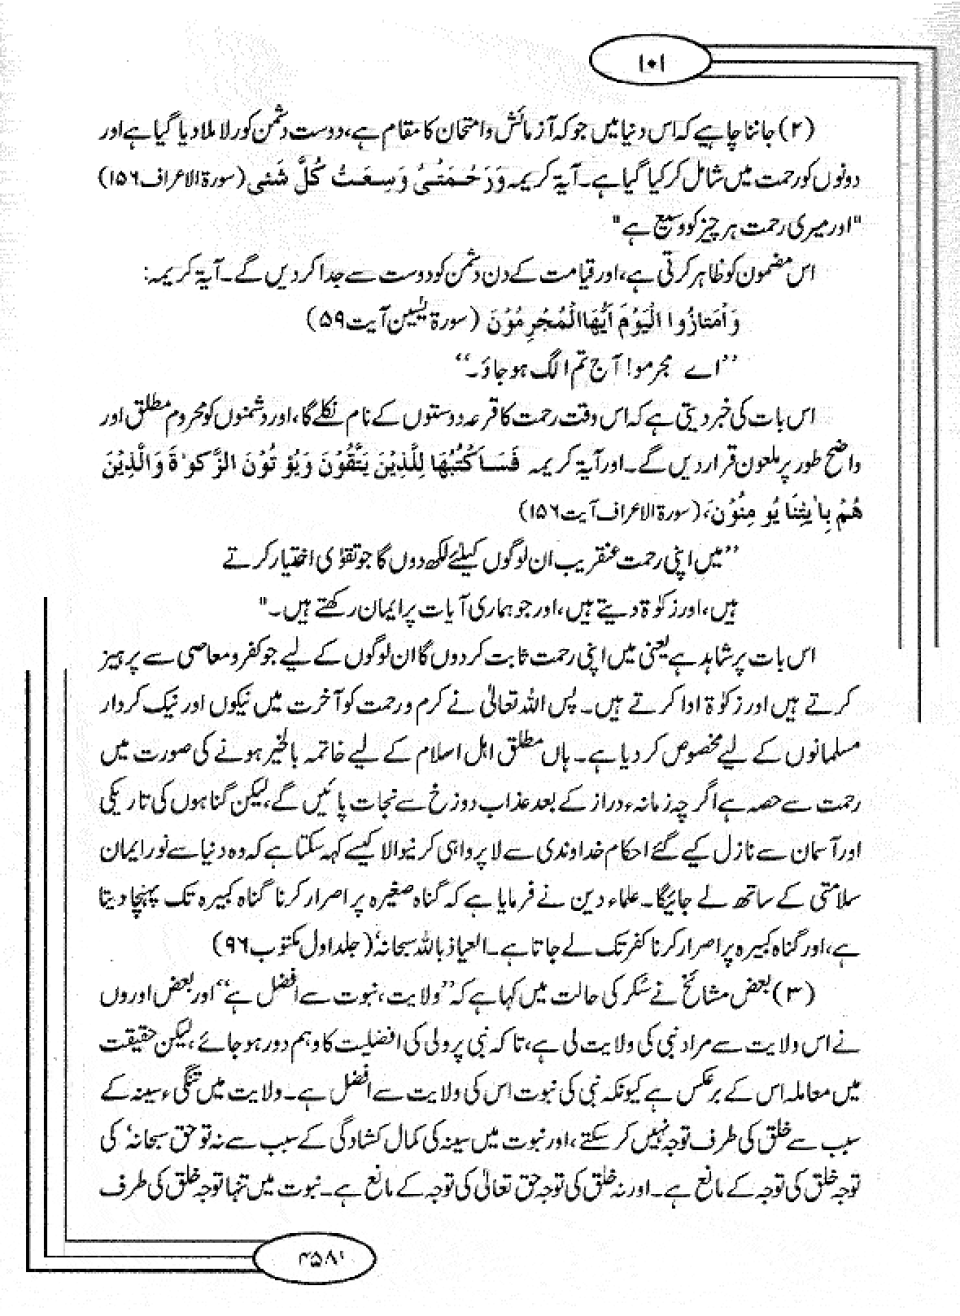 ۱۰۱
(۲) جاننا چاہیے کہ اس دنیا میں جو کہ آزمائش و امتحان کا مقام ہے، دوست دشمن کو رلا ملا دیا گیا ہے اور
دونوں کو رحمت میں شامل کر کیا گیا ہے۔ آیۃ کریمہ وَرَحْمَتِیْ وَسِعَتْ کُلَّ شَئی (سورۃ الاعراف ۱۵۶)
"اور میری رحمت ہر چیز کو وسیع ہے"
اس مضمون کو ظاہر کرتی ہے، اور قیامت کے دن دشمن کو دوست سے جدا کر دیں گے۔ آیۃ کریمہ:
وَاْمتَازُوا الْیَوْمَ اَیُّهَاالْمُجْرِمُوْنَ (سورۃ یٰسین آیت ۵۹)
’’اے مجرمو! آج تم الگ ہو جاؤ۔‘‘
اس بات کی خبر دیتی ہے کہ اس وقت رحمت کا قرعہ دوستوں کے نام نکلے گا، اور دشمنوں کو محروم مطلق اور
واضح طور پر ملعون قرار دیں گے۔ اور آیۃ کریمہ فَسَاَکْتُبُهَا لِلَّذِیْنَ یَتَّقُوْنَ وَیُوْتُوْنَ الزَّکوٰۃَ وَالَّذِیْنَ
هُمْ بِاٰیٰتِنَا یُومِنُوْنَ، (سورۃ الاعراف آیت ۱۵۶)
’’میں اپنی رحمت عنقریب ان لوگوں کیلئے لکھ دوں گا جو تقوٰی اختیار کرتے
ہیں، اور زکوٰۃ دیتے ہیں، اور جو ہماری آیات پر ایمان رکھتے ہیں۔"
اس بات پر شاہد ہے یعنی میں اپنی رحمت ثابت کر دوں گا ان لوگوں کے لیے جو کفر و معاصی سے پرہیز
کرتے ہیں اور زکوٰۃ ادا کرتے ہیں۔ پس اللہ تعالیٰ نے کرم و رحمت کو آخرت میں نیکوں اور نیک کردار
مسلمانوں کے لیے مخصوص کر دیا ہے۔ ہاں مطلق اہل اسلام کے لیے خاتمہ بالخیر ہونے کی صورت میں
رحمت سے حصہ ہے اگرچہ زمانہء دراز کے بعد عذاب دوزخ سے نجات پائیں گے، لیکن گناہوں کی تاریکی
اور آسمان سے نازل کیے گئے احکام خداوندی سے لا پرواہی کرنیوالا کیسے کہہ سکتا ہے کہ وہ دنیا سے نور ایمان
سلامتی کے ساتھ لے جائیگا۔ علماء دین نے فرمایا ہے کہ گناہ صغیرہ پر اصرار کرنا گناہ کبیرہ تک پہنچا دیتا
ہے، اور گناہ کبیرہ پر اصرار کرنا کفر تک لے جاتا ہے۔ العیاذ باللہ سبحانہٗ (جلد اول مکتوب ۹۶)
(۳) بعض مشائخ نے سُکر کی حالت میں کہا ہے کہ ’’ولایت، نبوت سے افضل ہے‘‘ اور بعض اوروں
نے اس ولایت سے مراد نبی کی ولایت لی ہے، تاکہ نبی پر ولی کی افضلیت کا وہم دور ہو جائے، لیکن حقیقت
میں معاملہ اس کے برعکس ہے کیونکہ نبی کی نبوت اس کی ولایت سے افضل ہے۔ ولایت میں تنگیء سینہ کے
سبب سے خلق کی طرف توجہ نہیں کر سکتے، اور نبوت میں سینہ کی کمال کشادگی کے سبب سے نہ تو حق سبحانہٗ کی
توجہ خلق کی توجہ کے مانع ہے۔ اور نہ خلق کی توجہ حق تعالیٰ کی توجہ کے مانع ہے۔ نبوت میں تنہا توجہ خلق کی طرف